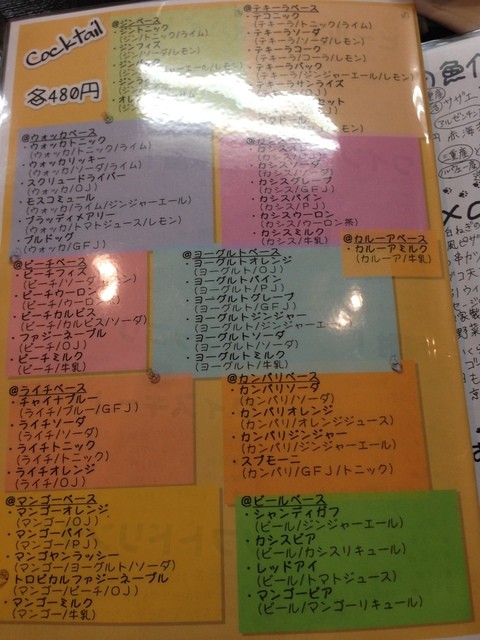 Cocktail
各480円
@ジンベース
・ジントニック
(ジン/トニック/ライム)
・ジンフィズ
(ジン/ソーダ/レモン)
@テキーラベース
・テコニック
(テキーラ/トニック/ライム)
・テキーラソーダ
(テキーラ/ソーダ/レモン)
・テキーラコーク
(テキーラ/コーラ/レモン)
・テキーラバック
(テキーラ/ジンジャーエール/レモン)
・テキーラサンライズ
@ウォッカベース
・ウォッカトニック
(ウォッカ/トニック/ライム)
・ウォッカリッキー
(ウォッカ/ソーダ/ライム)
・スクリュードライバー
(ウォッカ/OJ)
・モスコミュール
(ウォッカ/ライム/ジンジャーエール)
・ブラッディメアリー
(ウォッカ/トマトジュース/レモン)
・ブルドッグ
(ウォッカ/GFJ)
・カシスグレープ
(カシス/GFJ)
・カシスパイン
(カシス/PJ)
・カシスウーロン
(カシス/ウーロン茶)
・カシスミルク
(カシス/牛乳)
@カルーアベース
・カルーアミルク
(カルーア/牛乳)
@ピーチベース
・ピーチフィズ
・ピーチウーロン
・ピーチカルピス
(ピーチ/カルピス/ソーダ)
・ファジーネーブル
(ピーチ/OJ)
・ピーチミルク
(ピーチ/牛乳)
@ヨーグルトベース
・ヨーグルトオレンジ
(ヨーグルト/OJ)
・ヨーグルトパイン
(ヨーグルト/PJ)
・ヨーグルトグレープ
(ヨーグルト/GFJ)
・ヨーグルトジンジャー
(ヨーグルト/ジンジャーエール)
・ヨーグルトソーダ
(ヨーグルト/ソーダ)
・ヨーグルトミルク
(ヨーグルト/牛乳)
@ライチベース
・チャイナブルー
(ライチ/ブルー/GFJ)
・ライチソーダ
(ライチ/ソーダ)
・ライチトニック
(ライチ/トニック)
・ライチオレンジ
(ライチ/OJ)
@カンパリベース
・カンパリソーダ
(カンパリ/ソーダ)
・カンパリオレンジ
(カンパリ/オレンジジュース)
・カンパリジンジャー
(カンパリ/ジンジャーエール)
・スプモーニ
(カンパリ/GFJ/トニック)
@マンゴーベース
・マンゴーオレンジ
(マンゴー/OJ)
・マンゴーパイン
(マンゴー/PJ)
・マンゴヤンラッシー
(マンゴー/ヨーグルト/ソーダ)
・トロピカルファジーネーブル
(マンゴー/ピーチ/OJ)
・マンゴーミルク
(マンゴー/牛乳)
@ビールベース
・シャンディガフ
(ビール/ジンジャーエール)
・カシスビア
(ビール/カシスリキュール)
・レッドアイ
(ビール/トマトジュース)
・マンゴービア
(ビール/マンゴーリキュール)